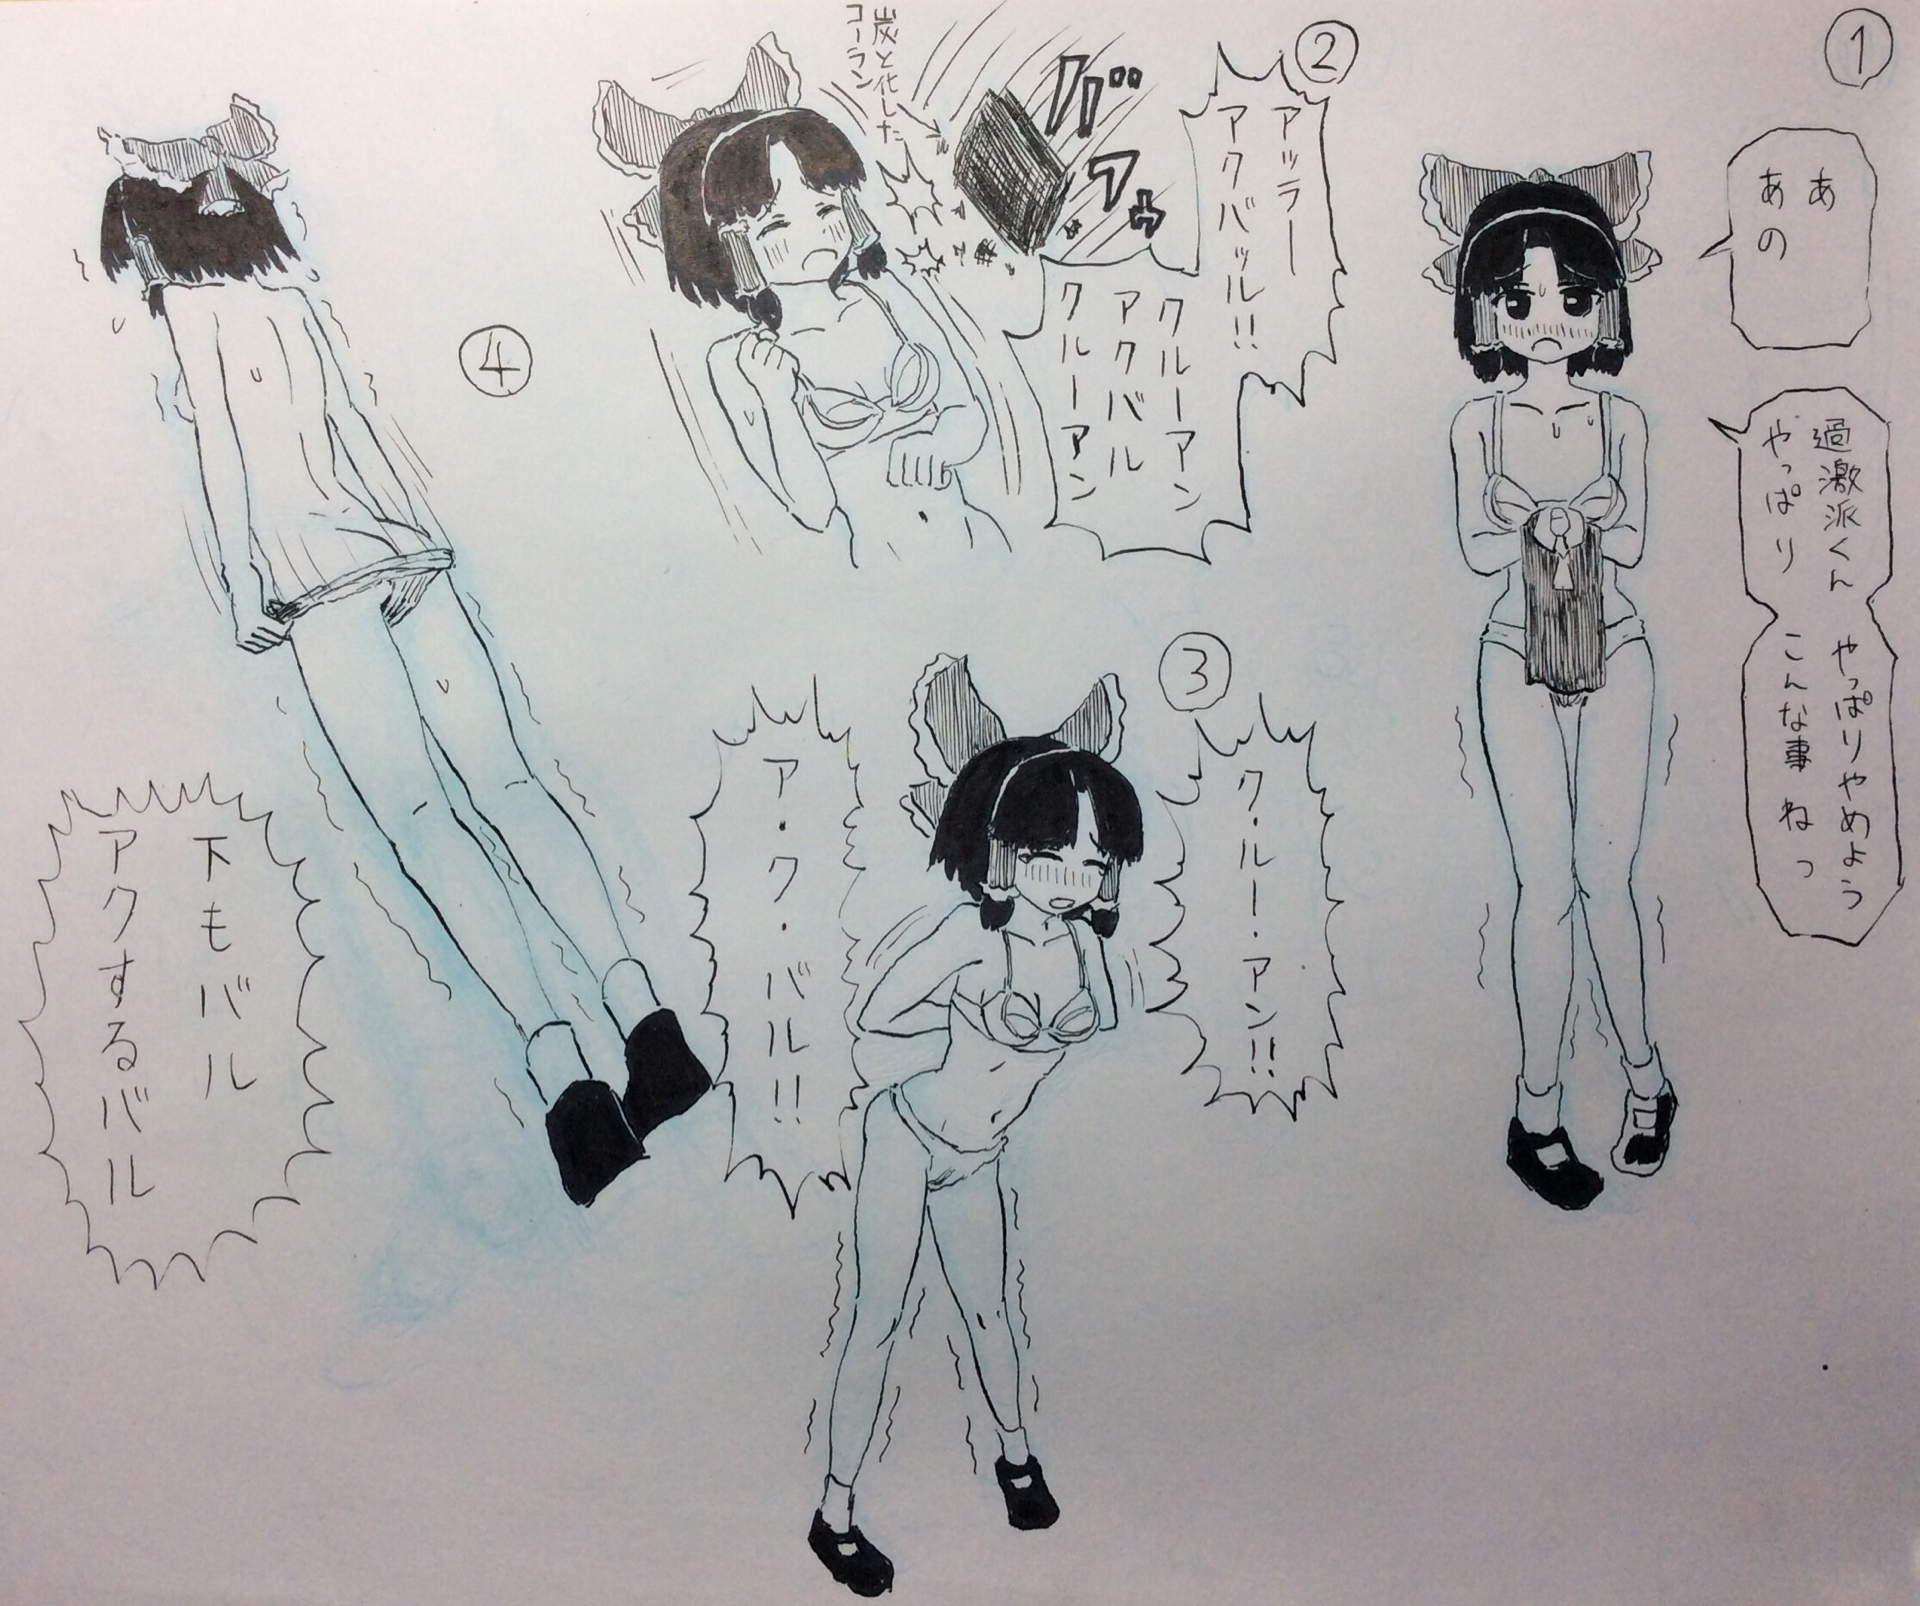 ①
あ
あの
過激派くん やっぱりやめよう
やっぱり こんな事 ねっ
②
アッラー
アクバッル!!
クルーアン
アクバル
クルーアン
ガ゛
ブゥ
炭と化した
コーラン
③
ク・ルー・アン!!
ア・ク・バル!!
④
下もバル
アクするバル